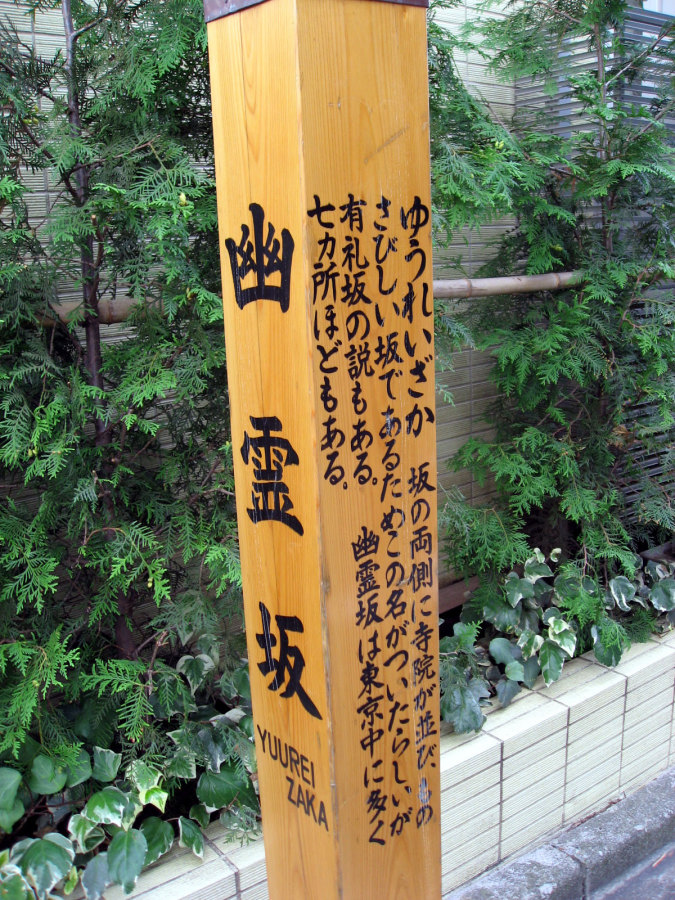 幽霊坂
YUUREI
ZAKA
ゆうれいざか 坂の両側に寺院が並びもの
さびしい坂であるためこの名がついたらしいが
有礼坂の説もある。 幽霊坂は東京中に多く
七カ所ほどもある。